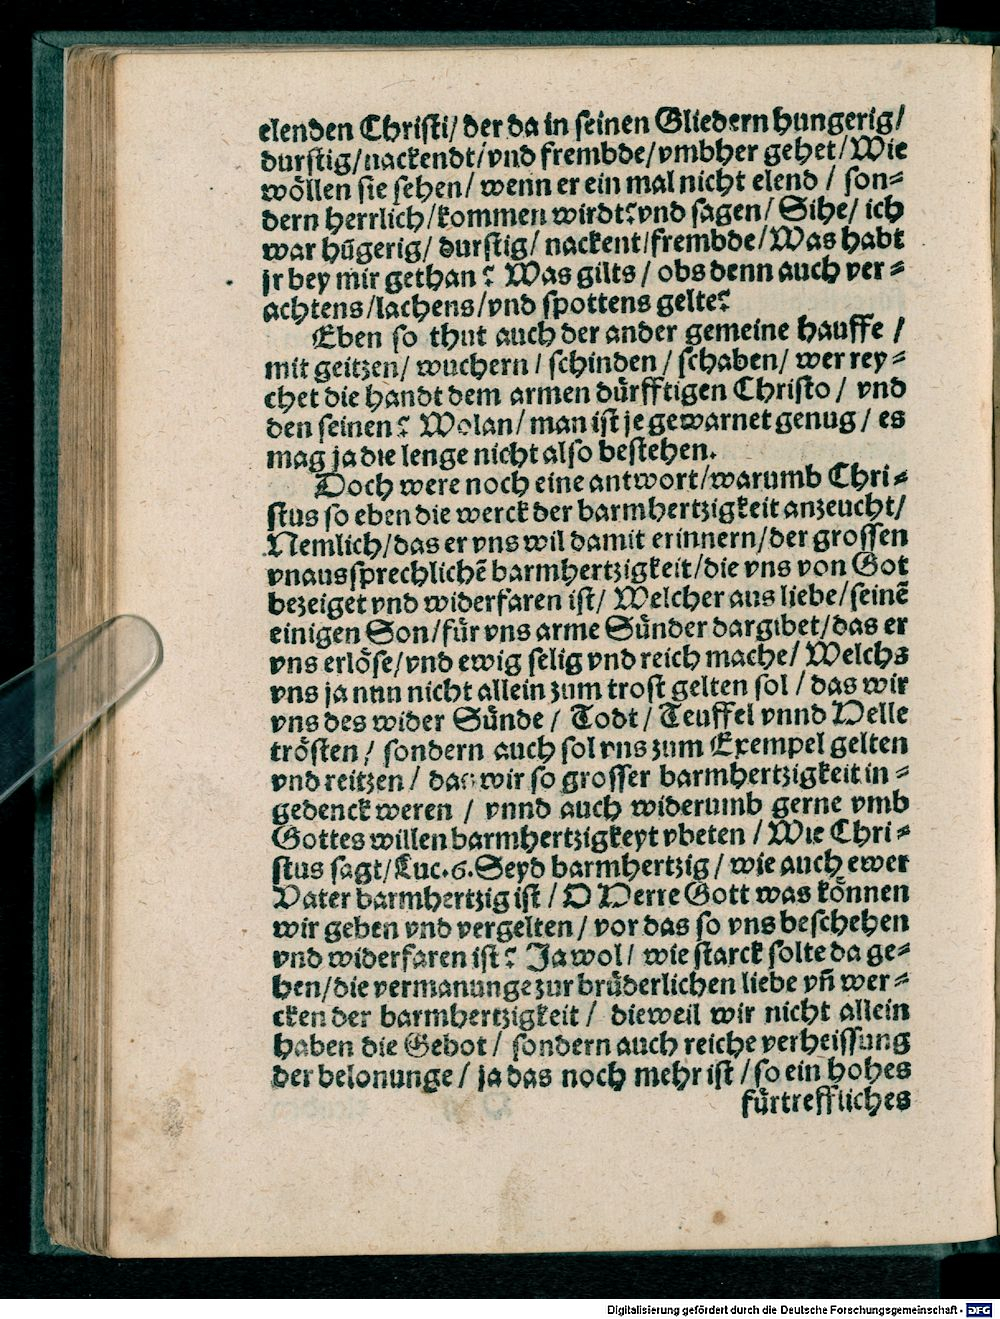 elenden Christi/ der da in seinen Gliedern hungerig/
durstig/nackendt/vnd frembde/vmbher gehet/Wie
wöllen sie sehen/ wenn er ein mal nicht elend / son⸗
dern herrlich/kommen wirdt? vnd sagen/ Sihe/ ich
war hũgerig/ durstig/ nackent/frembde/Was habt
jr bey mir gethan? Was gilts / obs denn auch ver⸗
achtens/lachens/vnd spottens gelte?
Eben so thut auch der ander gemeine hauffe /
mit geitzen/ wuchern / schinden / schaben/ wer rey⸗
chet die handt dem armen dürfftigen Christo / vnd
den seinen? Wolan/ man ist je gewarnet genug / es
mag ja die lenge nicht also bestehen.
Doch were noch eine antwort/warumb Chri⸗
stus so eben die werck der barmhertzigkeit anzeucht/
Nemlich/das er vns wil damit erinnern/der grossen
vnaussprechlichẽ barmhertzigkeit/die vns von Got
bezeiget vnd widerfaren ist/ Welcher aus liebe/seinẽ
einigen Son/für vns arme Sünder dargibet/das er
vns erlöse/vnd ewig selig vnd reich mache/ Welchs
vns ja nun nicht allein zum trost gelten sol / das wir
vns des wider Sünde / Todt / Teuffel vnnd Helle
trösten / sondern auch sol vns zum Exempel gelten
vnd reitzen / das wir so grosser barmhertzigkeit in⸗
gedenck weren / vnnd auch widerumb gerne vmb
Gottes willen barmhertzigkeyt vbeten / Wie Chri⸗
stus sagt/Luc.6. Seyd barmhertzig / wie auch ewer
Vater barmhertzig ist / O Herre Gott was können
wir geben vnd vergelten / vor das so vns beschehen
vnd widerfaren ist? Ja wol/ wie starck solte da ge⸗
hen/die vermanunge zur brüderlichen liebe vñ wer⸗
cken der barmhertzigkeit / dieweil wir nicht allein
haben die Gebot / sondern auch reiche verheissung
der belonunge / ja das noch mehr ist / so ein hohes
fürtreffliches
Digitalisierung gefördert durch die Deutsche Forschungsgemeinschaft - DFG